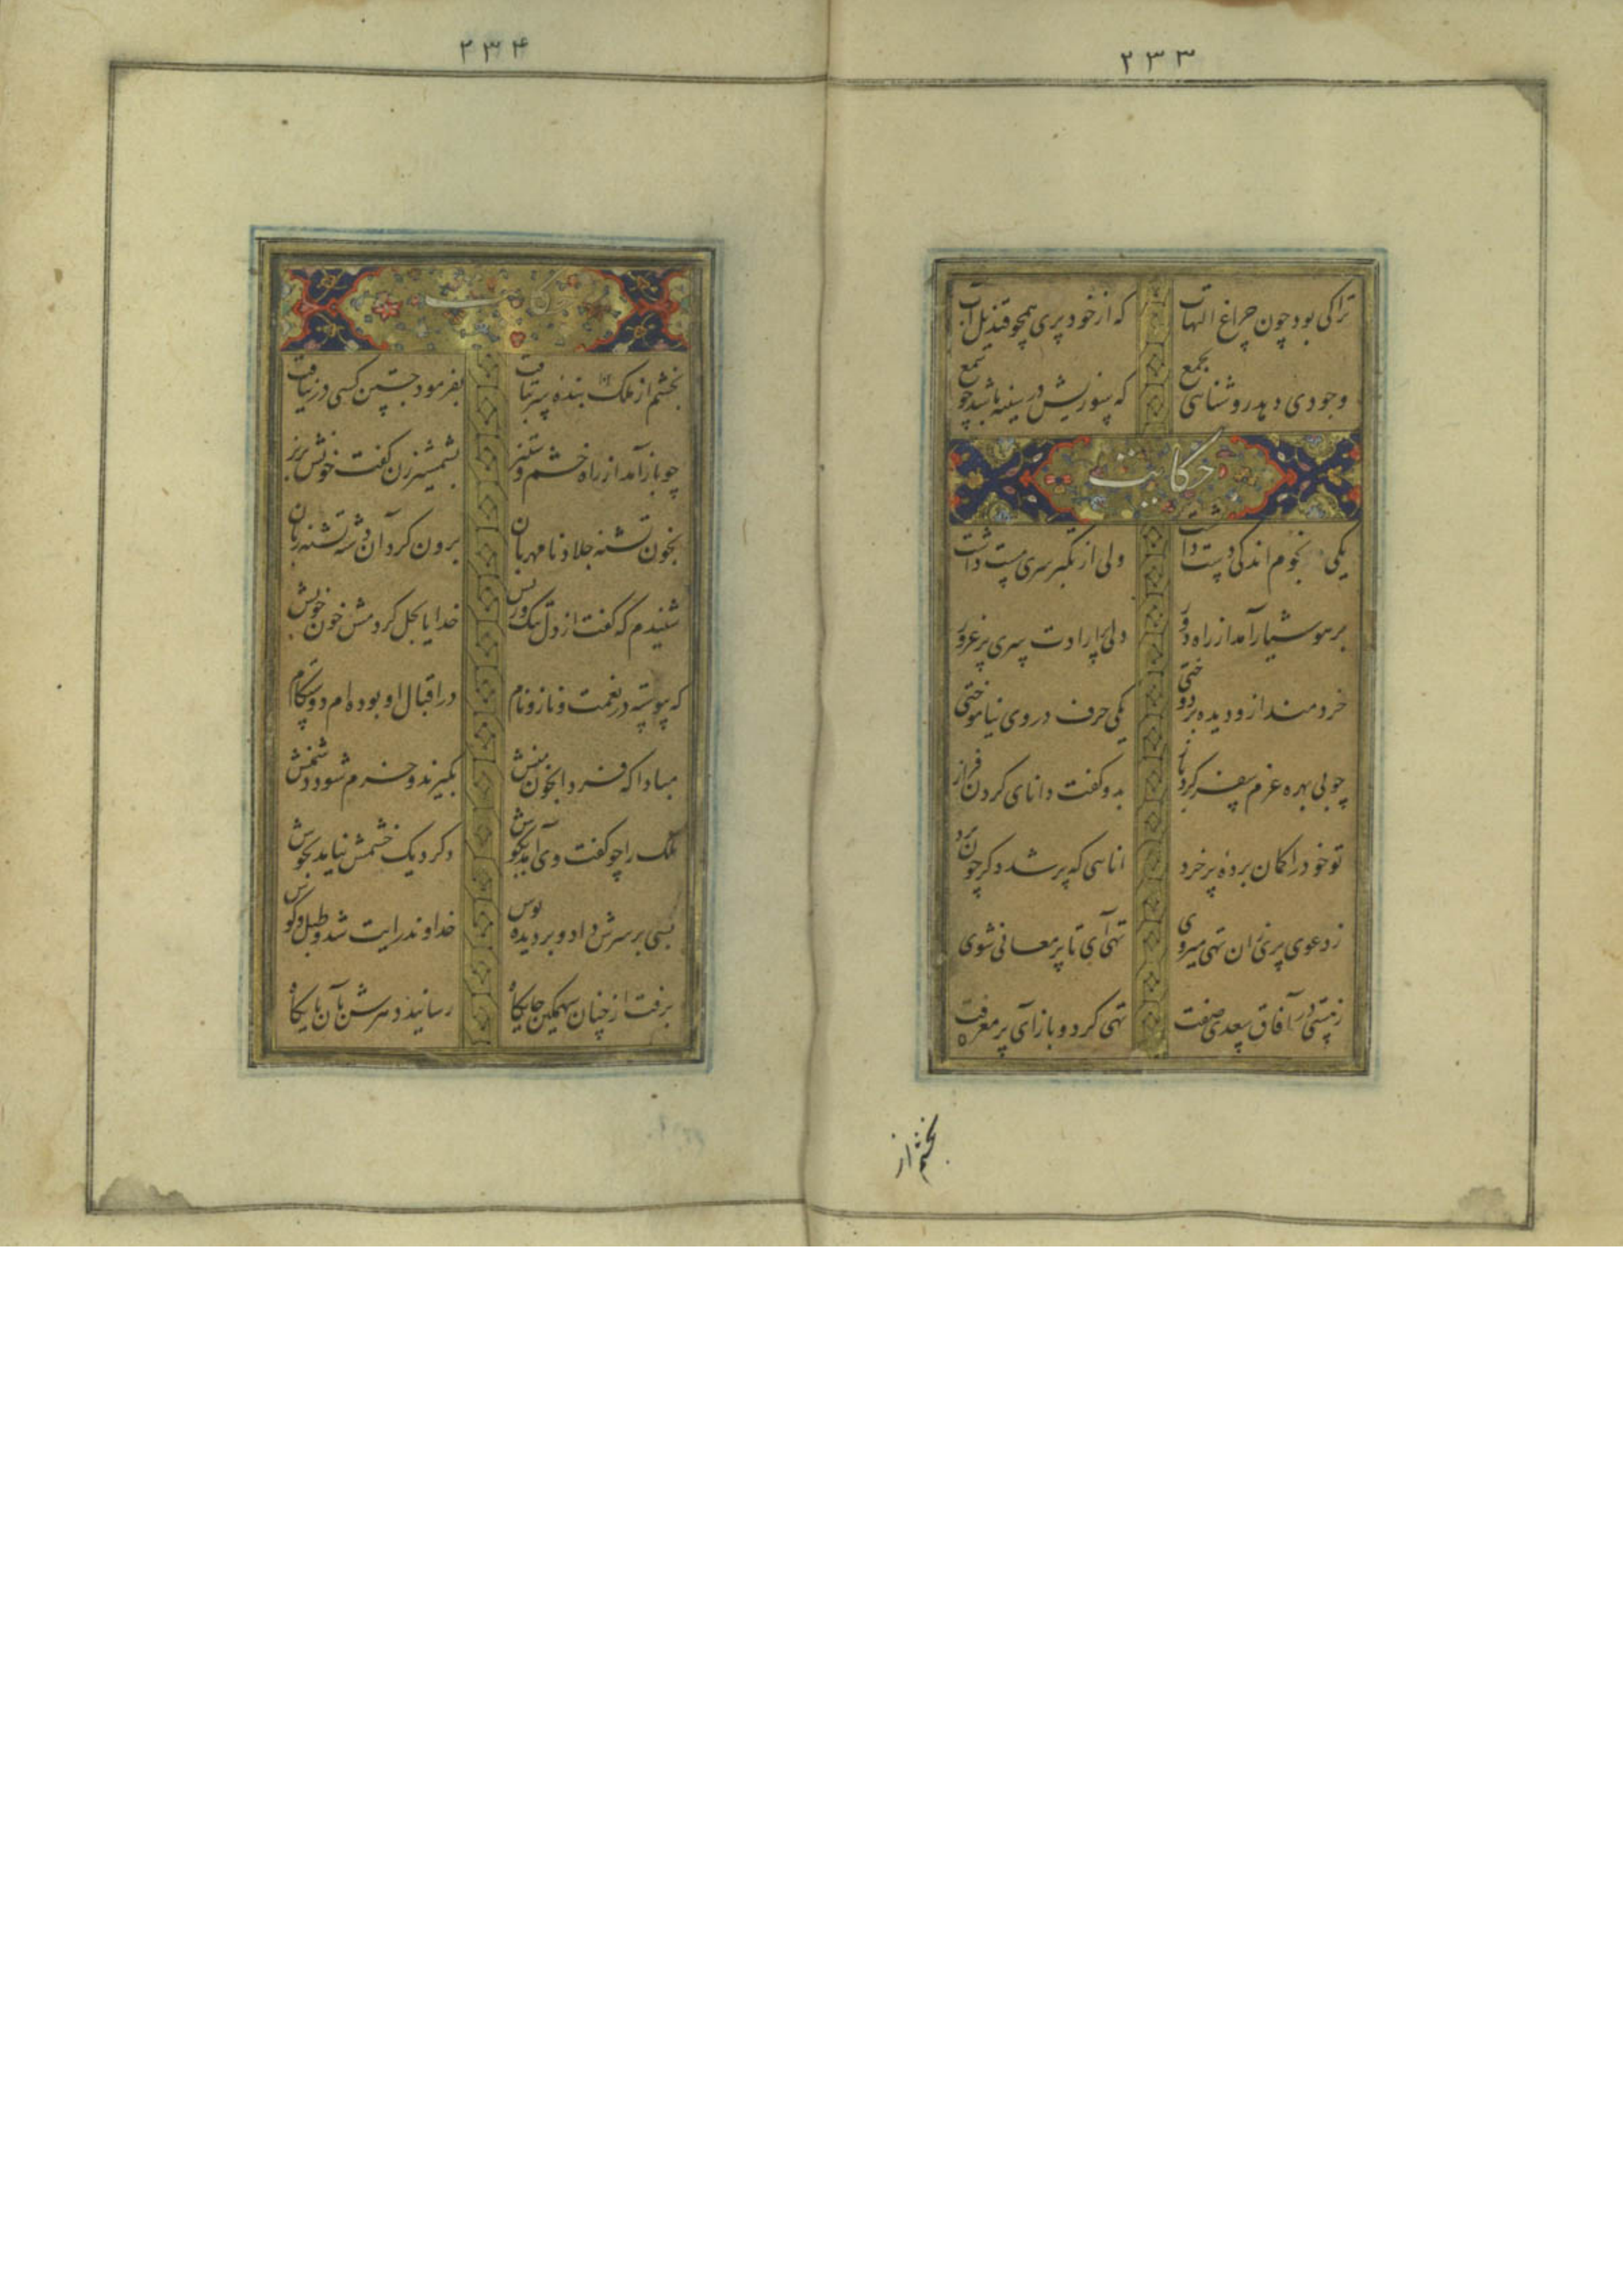 ۲۳۳
ترا کی بود چون چراغ التهاب که از خود پری همچو قندیل آب
وجودی دهد روشنایی بجمع که سوزیش در سینه باشد چو شمع
حکایت
یکی نجوم اندکی دست داشت ولی از تکبر سری مست داشت
بر هوشیار آمد از راه دور دلی پر ارادت سری پر غرور
خردمند ازو دیده بر دوختی یکی حرف در وی نیاموختی
چو بی بهره عزم سفر کرد باز بدو گفت دانای گردن فراز
تو خود را کمان برده پر خرد انائی که پر شد دکر چون برد
ز دعوی پری زان تهی میروی تهی آی تا پر معانی شوی
ز هستی در آفاق سعدی صفت تهی کرد و باز آی پر معرفت
بخشم از
۲۳۴
حکایت
بخشم از ملک بنده سر بتافت بفرمود جستن کسی در نیافت
چو باز آمد از راه خشم و ستیز بشمشیر زن گفت خونش بریز
بخون تشنه جلاد نامهربان برون کرد آن دشنه تشنه زبان
شنیدم که گفت از دل تنک ریش خدایا بحل کردمش خون خویش
که پیوسته در نعمت و ناز و نام در اقبال او بوده ام دوستکام
مبادا که فردا بخون منش بگیرند و خرم شود دشمنش
ملک را چو گفت وی آمد بگوش دکر دیک خشمش نیامد بجوش
بسی بر سرش داد و بر دیده بوس خداوند رایت شد و طبل و کوس
برفت از چنان سهمگین جایگاه رسانید دهرش بآن پایگاه